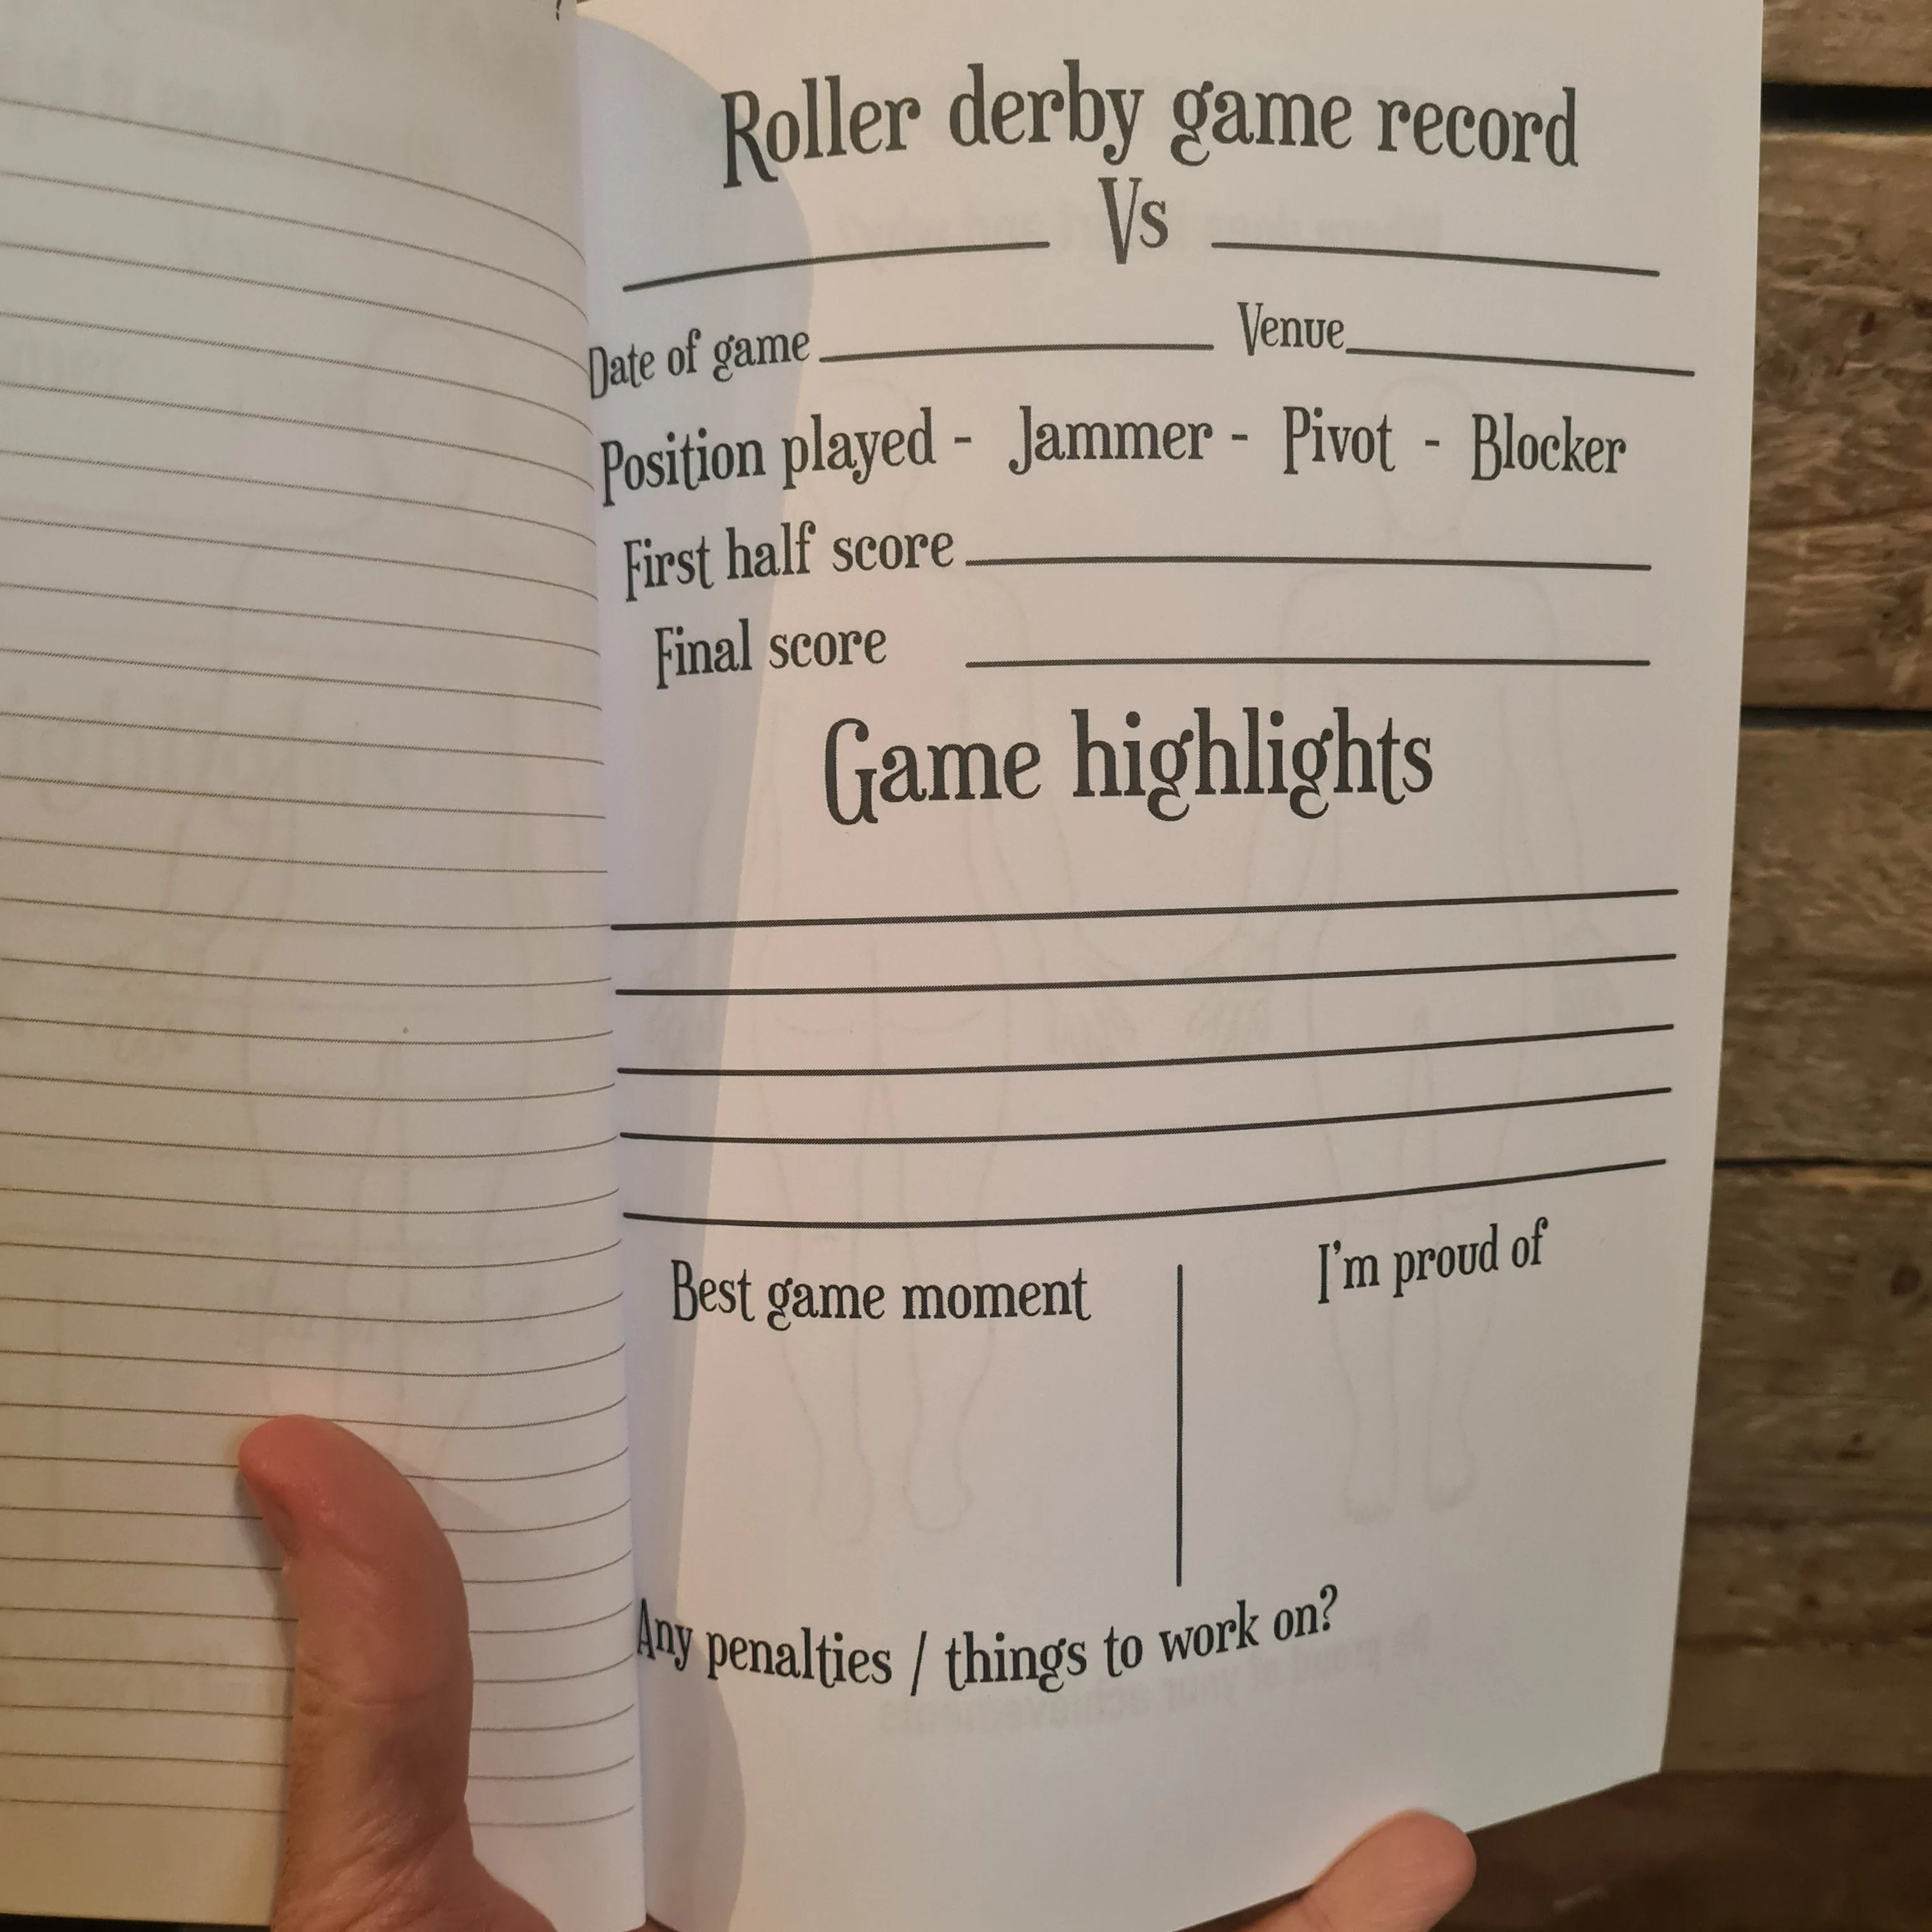 Roller derby game record
Vs
Date of game Venue
Position played - Jammer - Pivot - Blocker
First half score
Final score
Game highlights
Best game moment I'm proud of
Any penalties / things to work on?